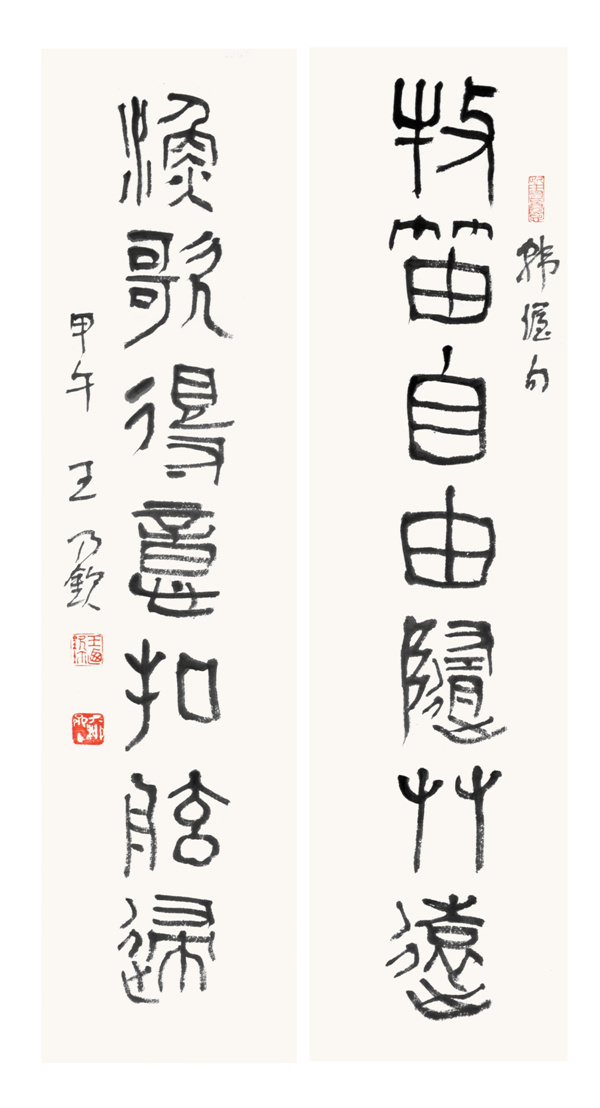 韓偓句
牧笛自由隨艸遠
漁歌得意扣舷歸
甲午 王乃欽